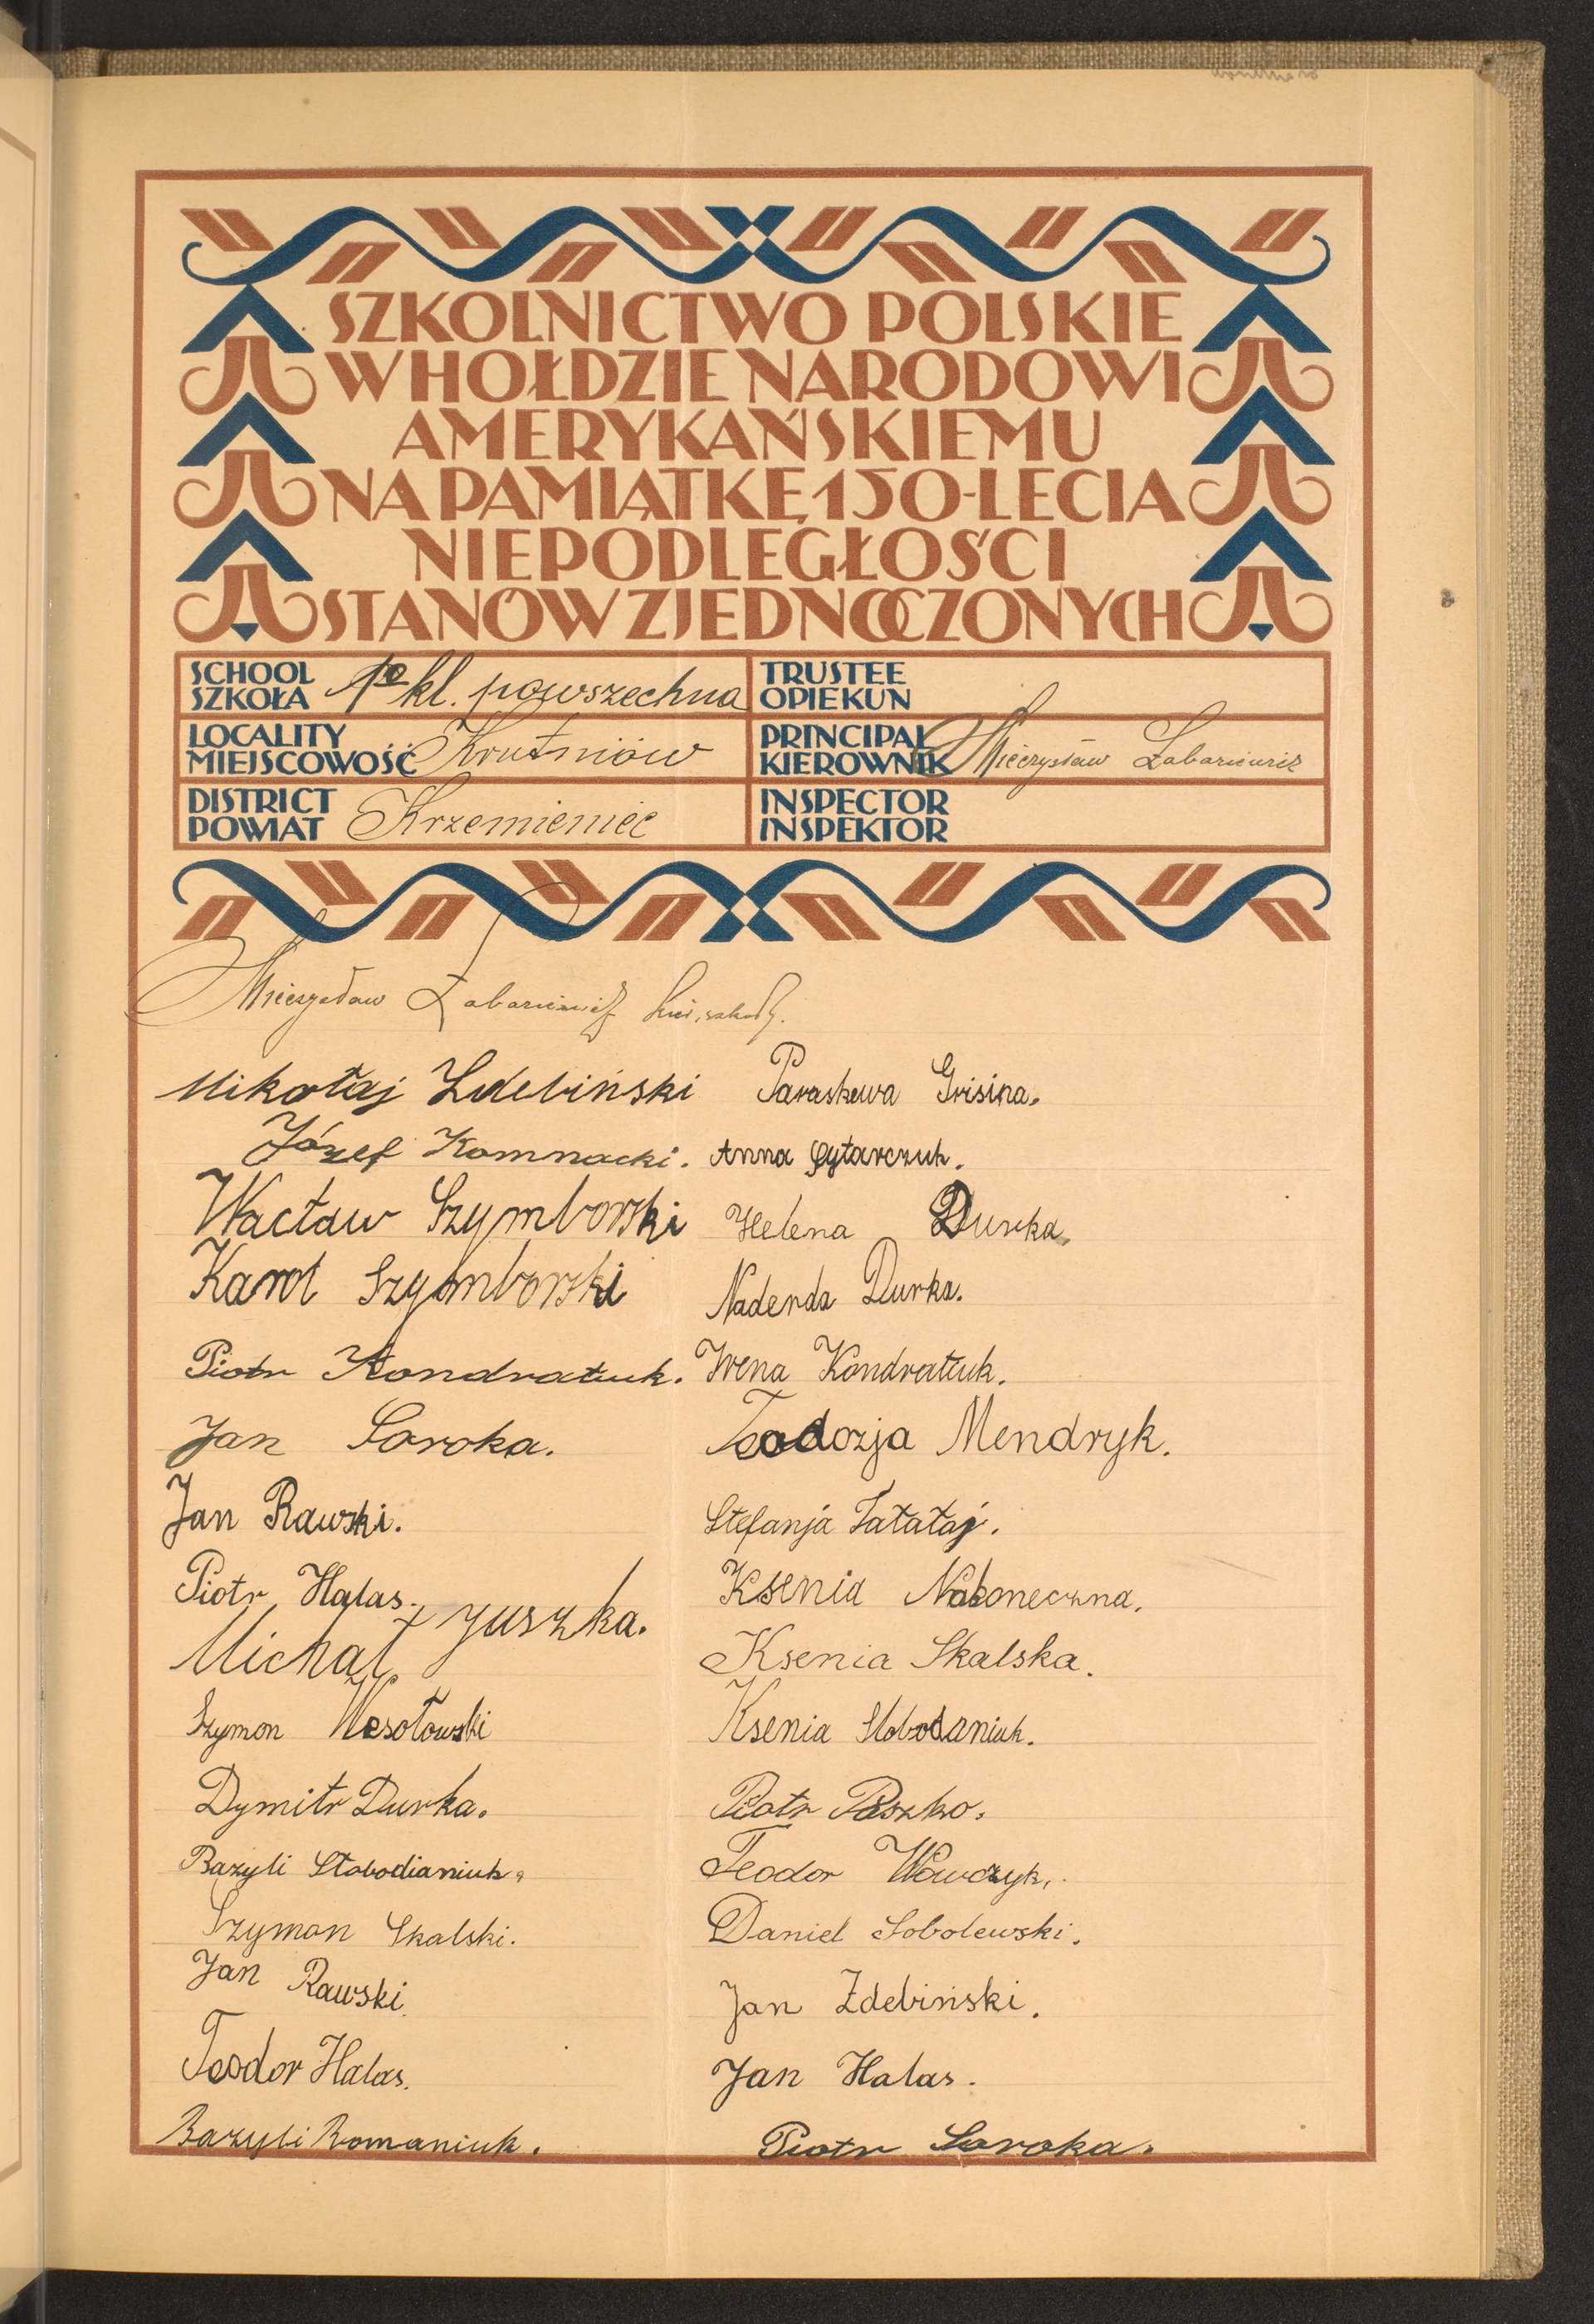 SZKOLNICTWO POLSKIE
W HOŁDZIE NARODOWI
AMERYKAŃSKIEMU
NA PAMIĄTKĘ 150-LECIA
NIEPODLEGŁOŚCI
STANÓW ZJEDNOCZONYCH
SCHOOL
SZKOŁA kl. powszechna
TRUSTEE
OPIEKUN
LOCALITY
MIEJSCOWOŚĆ Krutniów
PRINCIPAL
KIEROWNIK Mieczysław
DISTRICT
POWIAT Krzemieniec
INSPECTOR
INSPEKTOR
Mieczysław
Mikołaj Zdebiński
Józef Komnacki.
Wacław Szymborski
Karol Szymborski
Piotr Kondratiuk.
Jan Soroka.
Jan Rawski.
Piotr Halas.
Michał Juszka.
Szymon Wesołowski
Dymitr Durka.
Bazyli Słobodianiuk.
Szymon Skalski.
Jan Rawski
Teodor Halas.
Bazyli Romaniuk.
Paraskewa Grisina.
Anna Cytarczuk.
Helena Durka
Nadenda Durka.
Irena Kondratiuk.
Teodozja Mendryk.
Stefanja Tatataj.
Ksenia Nakoneczna.
Ksenia Skalska.
Ksenia Slobodaniuk.
Piotr Paszko.
Teodor Wawczyk.
Daniel Sobolewski.
Jan Zdebiński.
Jan Halas.
Piotr Soroka.